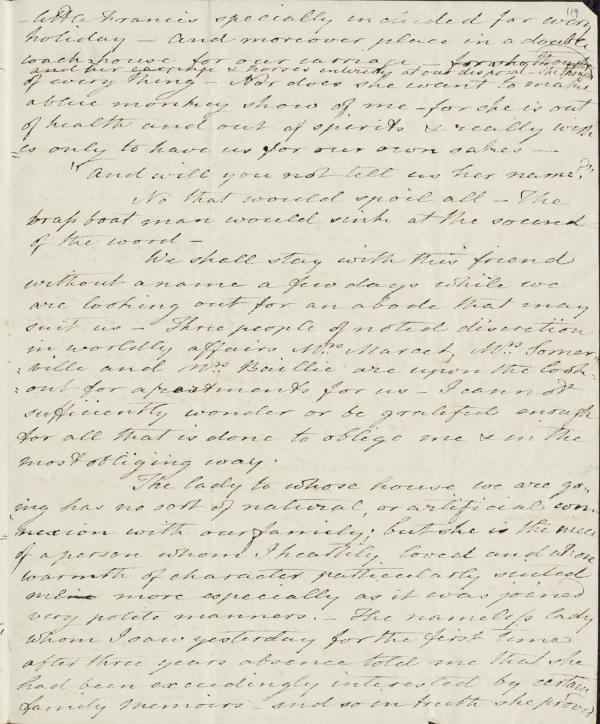 119
- little Francis specially included for every
holiday - and moreover place in a double
coach house for our carriage - for she thought
and her carriage & horses entirely at our disposal - She thought
of every thing - Nor does she want to make
a blue monkey show of me - for she is out
of health and out of spirits & really wish
= es only to have us for our own sakes -
"And will you not tell us her name?"
No that would spoil all - The
brass boat man would sink at the sound
of the word -
We shall stay with this friend
without a name a few days while we
are looking out for an abode that may
suit us - Three people of noted discretion
in worldly affairs Mrs Marcet, Mrs Somer-
-ville and Mrs Baillie are upon the look-
-out for apartments for us - I cannot
sufficiently wonder or be grateful enough
for all that is done to oblige me & in the
most obliging way.
The lady to whose house we are go-
-ing has no sort of natural, or artificial con-
nexion with our family; but she is the niece
of a person whom I heartily loved and whose
warmth of character particularly suited
me more especially as it was joined
very polite manners. - The nameless lady
whom I saw yesterday for the first time
after three years absence told me that she
had been exceedingly interested by certain
family memoirs - and so in truth she proved